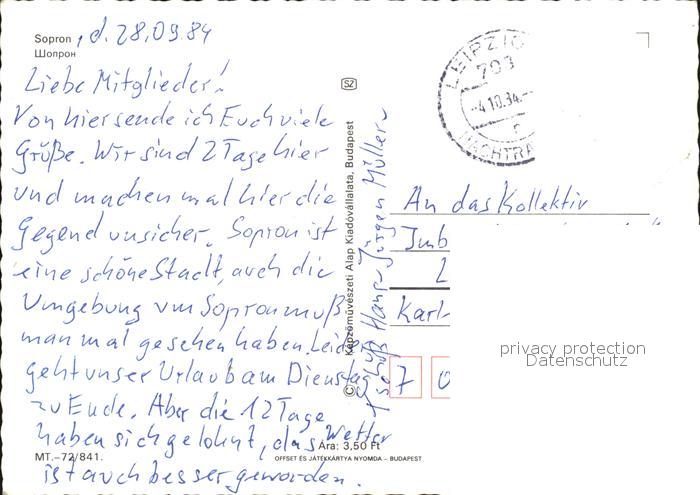 Sopron, d. 28.09.84
Шопрон
Liebe Mitglieder!
Von hier sende ich Euch viele
Grüße. Wir sind 2 Tage hier
und machen mal hier die
Gegend unsicher. Sopron ist
eine schöne Stadt, auch die
Umgebung von Sopron muß
man mal gesehen haben. Leider
geht unser Urlaub am Dienstag
zu Ende. Aber die 12 Tage
haben sich gelohnt, das Wetter
ist auch besser geworden.
Hans Jürgen Müller
MT.–72/841.
Ára: 3,50 Ft
OFFSET ÉS JÁTÉKKÁRTYA NYOMDA – BUDAPEST
SZ
© Képzőművészeti Alap Kiadóvállalata, Budapest
LEIPZIG
703
-4.10.84.-
An das Kollektiv
Imb
L
Karl-
7 0
privacy protection
Datenschutz